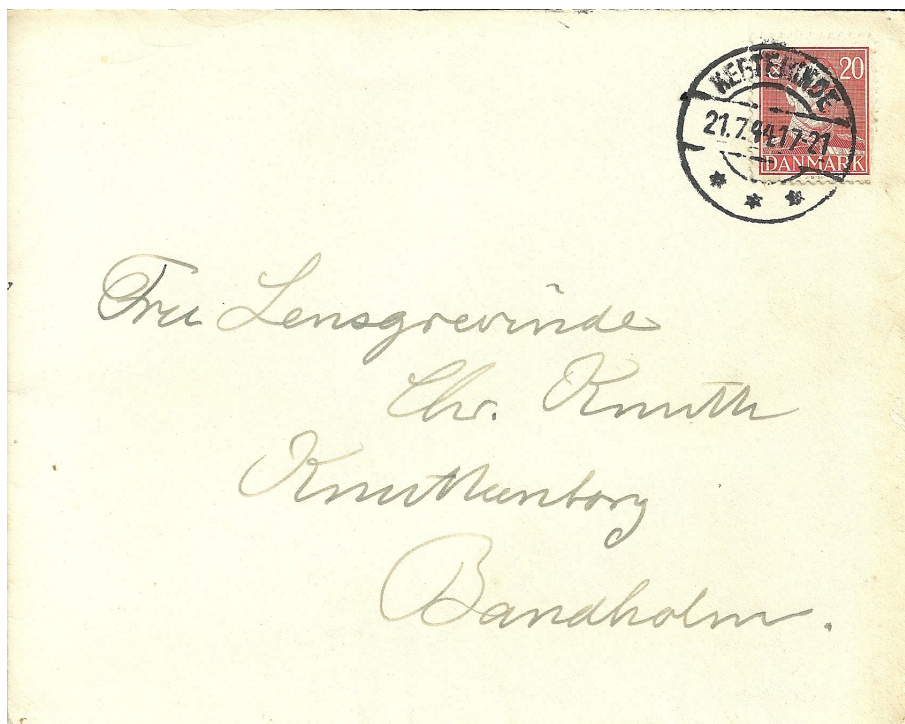 KERTEMINDE
20
21.7.44.17-21
DANMARK
Fru Lensgrevinde
Chr. Knuth
Knuthenborg
Bandholm.